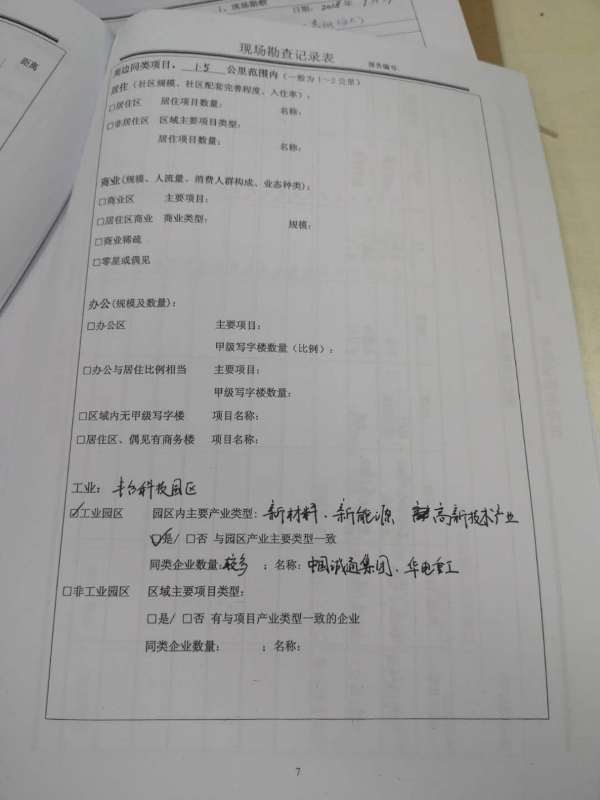 1、现场勘察
日期：2018年
距离
现场勘查记录表
报告编号：
周边同类项目，1.5 公里范围内（一般为1～2公里）
居住（社区规模、社区配套完善程度、入住率）：
□居住区 居住项目数量： 名称：
□非居住区 区域主要项目类型：
居住项目数量： 名称：
商业(规模、人流量、消费人群构成、业态种类)：
□商业区 主要项目：
□居住区商业 商业类型： 规模：
□商业稀疏
□零星或偶见
办公(规模及数量)：
□办公区 主要项目：
甲级写字楼数量（比例）：
□办公与居住比例相当 主要项目：
甲级写字楼数量：
□区域内无甲级写字楼 项目名称：
□居住区、偶见有商务楼 项目名称：
工业：丰台科技园区
☑工业园区 园区内主要产业类型：新材料、新能源 高新技术产业
☑是/ □否 与园区产业主要类型一致
同类企业数量：较多 ；名称：中国诚通集团、华电重工
□非工业园区 区域主要项目类型：
□是/ □否 有与项目产业类型一致的企业
同类企业数量： ；名称：
7